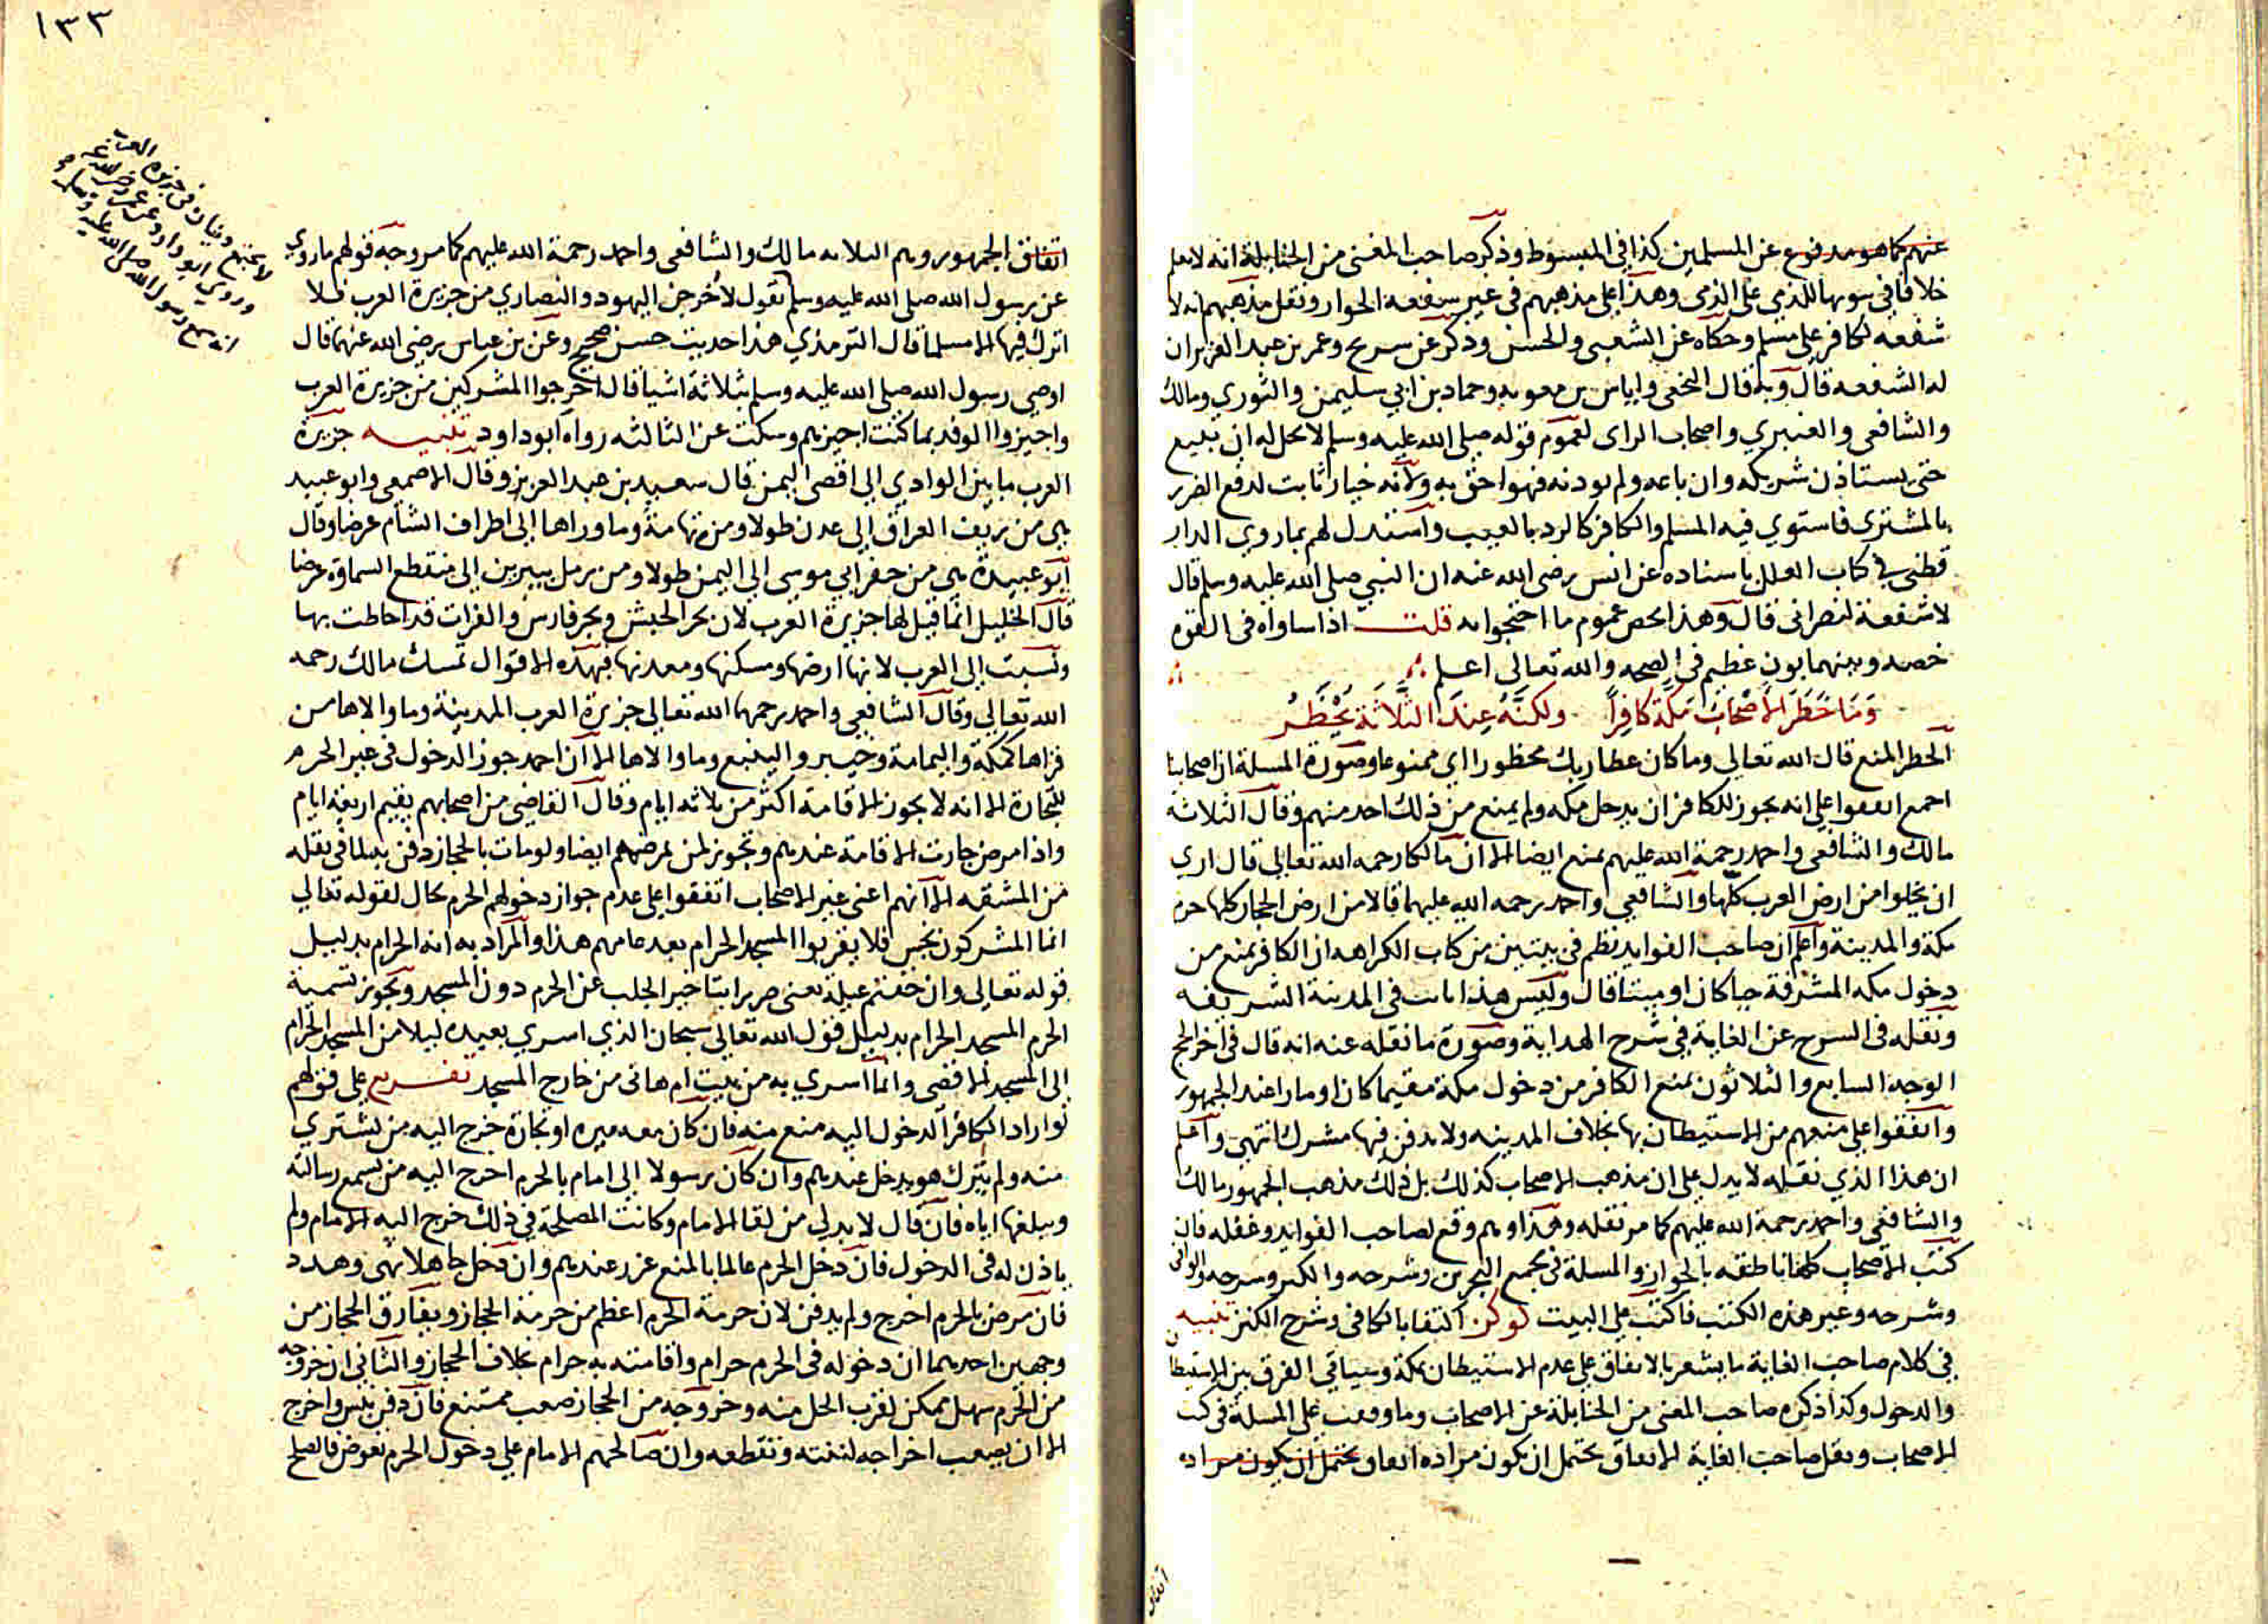 عنهم كما هو مدفوع عن المسلمين كذا في المبسوط وذكر صاحب المغنى من الحنابلة انه لا نعلم
خلافا في ثبوتها للذمي على الذمي وهذا على مذهبهم في غير شفعة الجوار ونقل مذهبهم انه لا
شفعه لكافر على مسلم وحكاه عن الشعبى والحسن وذكر عن سريج وعمر بن عبد العزيز ان
له الشفعه قال وبه قال النخعى واياس بن معويه وحماد بن ابي سليمن والثوري ومالك
والشافعى والعنبري واصحاب الراى لعموم قوله صلى الله عليه وسلم لا يحل له ان يبيع
حتى يستاذن شريكه وان باعه ولم يوذنه فهو احق به ولانه خيار ثابت لدفع الضرر
بالمشترى فاستوي فيه المسلم والكافر كالرد بالعيب واستدل لهم بما روي الدار
قطنى في كتاب العلل باسناده عن انس رضى الله عنه ان النبي صلى الله عليه وسلم قال
لا شفعة لنصرانى قال وهذا يخص عموم ما احتجوا به قلت اذا ساواه في القوه
خصه وبينهما بون عظيم في الصحه والله تعالى اعلم
وَمَا حَظَرَ الأَصْحَابُ مَكَّةَ كَافِراً ولكنَّهُ عِندَ الثَّلَاثَةِ يُحْظَرُ
الحظر المنع قال الله تعالي وما كان عطا ربك محظورا اي ممنوعا وصورة المسلة ان اصحابنا
اجمع اتفقوا على انه يجوز للكافر ان يدخل مكه ولم يمنع من ذلك احد منهم وقال الثلاثة
مالك والشافعى واحمد رحمة الله عليهم يمنع ايضا الا ان مالكا رحمه الله تعالي قال اري
ان يجلوا من ارض العرب كلها والشافعي واحمد رحمه الله عليهما قالا من ارض الحجاز كلها حرم
مكة والمدينة واعلم ان صاحب الفوايد نظم في بيتين من كتاب الكراهه ان الكافر يمنع من
دخول مكه المشرفة حيا كان او ميتا قال وليس هذا بابت في المدينة الشريفه
ونقله في الشرح عن الغاية في شرح الهداية وصورة ما نقله عنه انه قال في اخر الحج
الوجه السابع والثلاثون يمنع الكافر من دخول مكة مقيما كان او مارا عند الجمهور
واتفقوا على منعهم من الاستيطان بها بخلاف المدينه ولا يدفن فيها مشرك انتهى واعلم
ان هذا الذي نقله لا يدل على ان مذهب الاصحاب كذلك بل ذلك مذهب الجمهور مالك
والشافعي واحمد رحمة الله عليهم كما مر نقله وهذا وهم وقع لصاحب الفوايد وغفله فان
كتب الاصحاب كلها ناطقه بالجواز والمسلة في مجمع البحرين وشرحه والكنز وشرحه والوافى
وشرحه وغير هذه الكتب فاكتب على البيت اكتفا بالكافى وشرح الكنز تنبيه
في كلام صاحب الغاية ما يشعر بالاتفاق على عدم الاستيطان بمكة وسياتي الفرق بين الاستيطان
والدخول وكذا ذكره صاحب المغنى من الحنابلة عن الاصحاب وما وقفت على المسلة في كتب
الاصحاب ونقل صاحب الغاية الاتفاق يحتمل ان يكون مراده اتفاق يحتمل ان يكون مراده
اتفاق
١٣٣
اتفاق الجمهور وهم الثلاثه مالك والشافعى واحمد رحمة الله عليهم كما مر وجه قولهم ما روي
عن رسول الله صلى الله عليه وسلم يقول لأخرجن اليهود والنصاري من جزيرة العرب فلا
اترك فيها الا مسلما قال الترمذي هذا حديث حسن صحيح وعن بن عباس رضى الله عنهما قال
اوصى رسول الله صلى الله عليه وسلم بثلاثة اشيا قال اخرجوا المشركين من جزيرة العرب
واجيزوا الوفد بما كنت اجيزهم وسكت عن الثالثه رواه ابو داود تنبيه جزيرة
العرب ما بين الوادي الى اقصى اليمن قال سعيد بن عبد العزيز وقال الاصمعى وابو عبيد
هى من ريف العراق الى عدن طولا ومن تهامة وما وراها الى اطراف الشام عرضا وقال
ابو عبيدة هى من حفر ابي موسى الي اليمن طولا ومن رمل يبرين الى منقطع السماوة عرضا
قال الخليل انما قيل لها جزيرة العرب لان بحر الحبش وبحر فارس والفرات قد احاطت بها
ونسبت الى العرب لانها ارضها ومسكنها ومعدنها فبهذه الاقوال تمسك مالك رحمه
الله تعالي وقال الشافعي واحمد رحمهما الله تعالي جزيرة العرب المدينة وما والاها من
قراها كمكة واليمامة وخيبر والينبع وما والاها الا ان احمد جوز الدخول في غير الحرم
للتجارة الا انه لا يجوز الاقامة اكثر من ثلاثه ايام وقال القاضي من اصحابهم يقيم اربعة ايام
واذا مرض جازت الاقامة عندهم وتجوز لمن يمرضهم ايضا ولو مات بالحجاز دفن به لما في نقله
من المشقه الا انهم اعنى غير الاصحاب اتفقوا على عدم جواز دخولهم الحرم بحال لقوله تعالي
انما المشركون نجس فلا يقربوا المسجد الحرام بعد عامهم هذا والمراد به انه الحرام بدليل
قوله تعالي وان خفتم عيلة يعنى ضررا بتاخير الجلب عن الحرم دون المسجد ويجوز تسمية
الحرم المسجد الحرام بدليل قول الله تعالي سبحان الذي اسري بعبده ليلا من المسجد الحرام
الى المسجد الاقصى وانما اسري به من بيت ام هانى من خارج المسجد تفريع على قولهم
لو اراد الكافر الدخول اليه منع منه فان كان معه ميره او تجارة خرج اليه من يشتري
منه ولم يترك هو يدخل عندهم وان كان رسولا الى امام بالحرم اخرج اليه من يسمع رسالته
ويبلغها اياه فان قال لا بد لي من لقا الامام وكانت المصلحة في ذلك خرج اليه الامام ولم
ياذن له في الدخول فان دخل الحرم عالما بالمنع عزر عندهم وان دخل جاهلا نهى وهدد
فان مرض بالحرم اخرج ولم يدفن لان حرمة الحرم اعظم من حرمة الحجاز ويفارق الحجاز من
وجهين احدهما ان دخوله في الحرم حرام واقامته به حرام بخلاف الحجاز والثاني ان خروجه
من الحرم سهل ممكن لقرب الحل منه وخروجه من الحجاز صعب ممتنع فان دفن نبش واخرج
الا ان يصعب اخراجه لنتنه وتقطعه وان صالحهم الامام على دخول الحرم بعوض فالصلح
لا يجتمع دينان في جزيرة العرب
وروي ابو داود عن عمر رضى الله عنه
انه سمع رسول الله صلى الله عليه وسلم